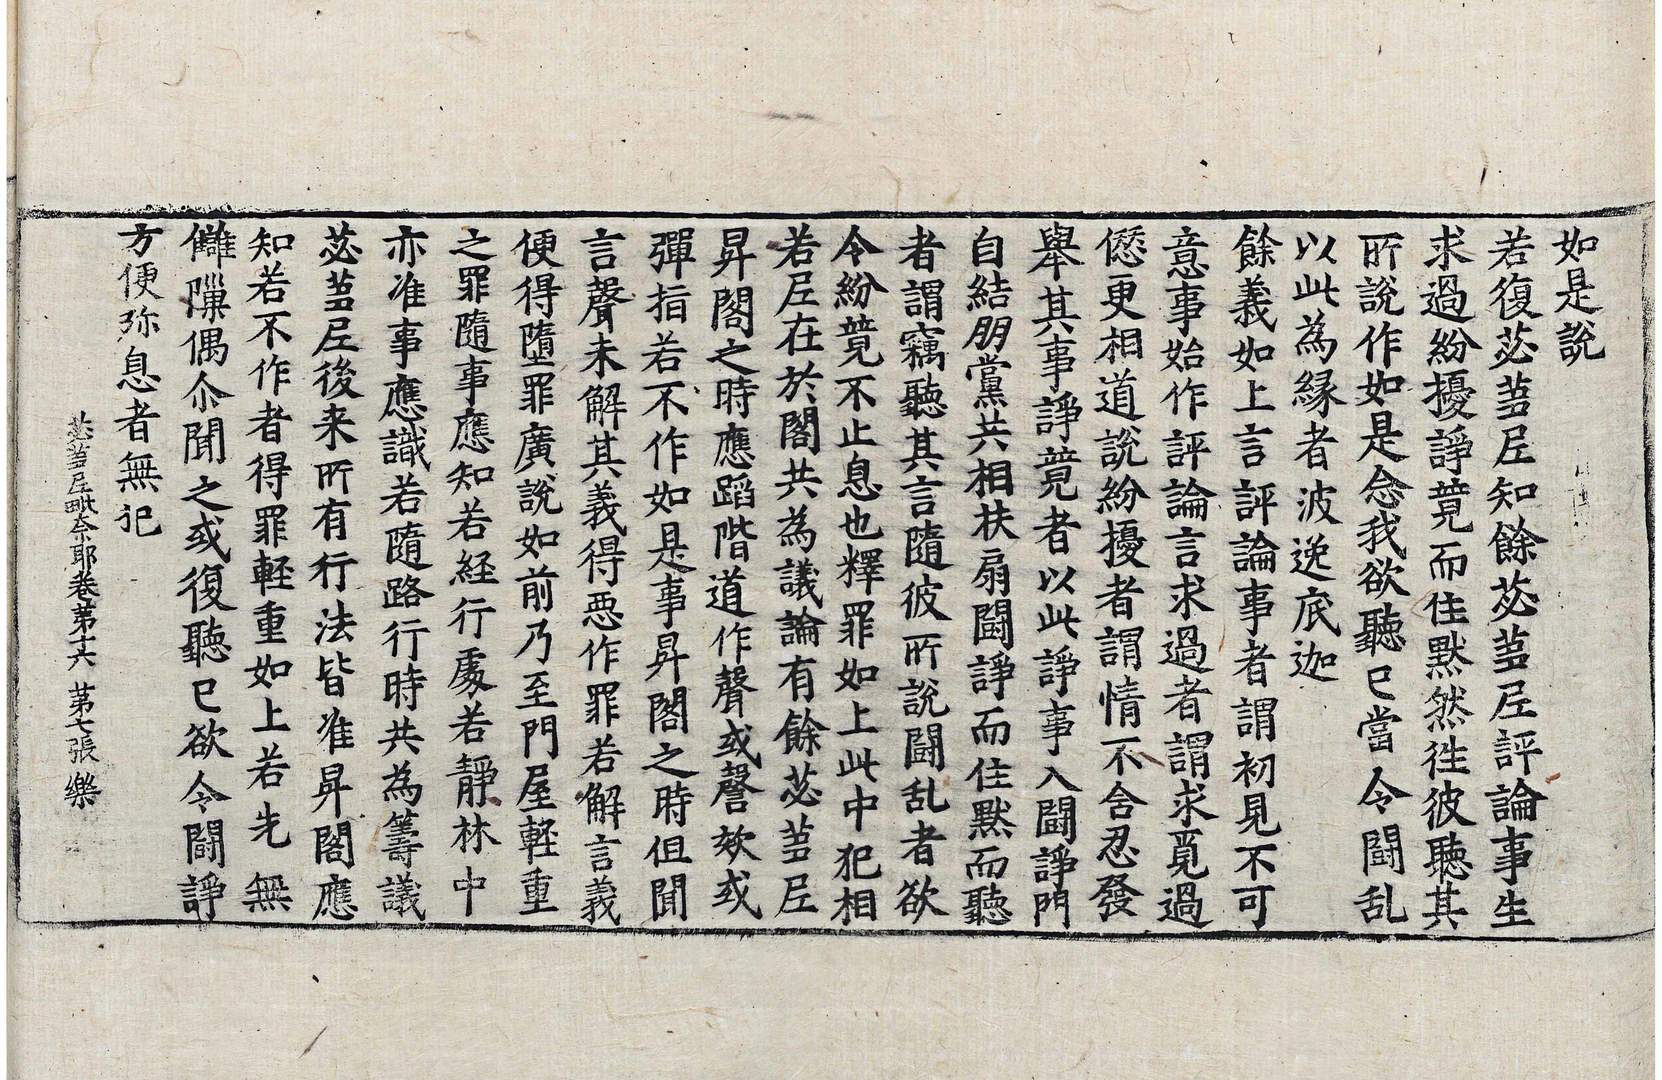 如是說
若復苾蒭尼知餘苾蒭尼評論事生
求過紛擾諍競而住默然往彼聽其
所說作如是念我欲聽已當令鬪乱
以此為緣者波逸底迦
餘義如上言評論事者謂初見不可
意事始作評論言求過者謂求覓過
愆更相道說紛擾者謂情不舍忍發
舉其事諍競者以此諍事入鬪諍門
自結朋黨共相扶扇鬪諍而住默而聽
者謂竊聽其言隨彼所說鬪乱者欲
令紛競不止息也釋罪如上此中犯相
若尼在於閣共為議論有餘苾蒭尼
昇閣之時應蹈階道作聲或謦欬或
彈指若不作如是事昇閣之時但聞
言聲未解其義得惡作罪若解言義
便得墮罪廣說如前乃至門屋輕重
之罪隨事應知若經行處若靜林中
亦准事應識若隨路行時共為籌議
苾蒭尼後来所有行法皆准昇閣應
知若不作者得罪輕重如上若先無
讎隟偶尒聞之或復聽已欲令鬪諍
方便弥息者無犯
苾蒭尼毗奈耶卷第十六 第七張 樂